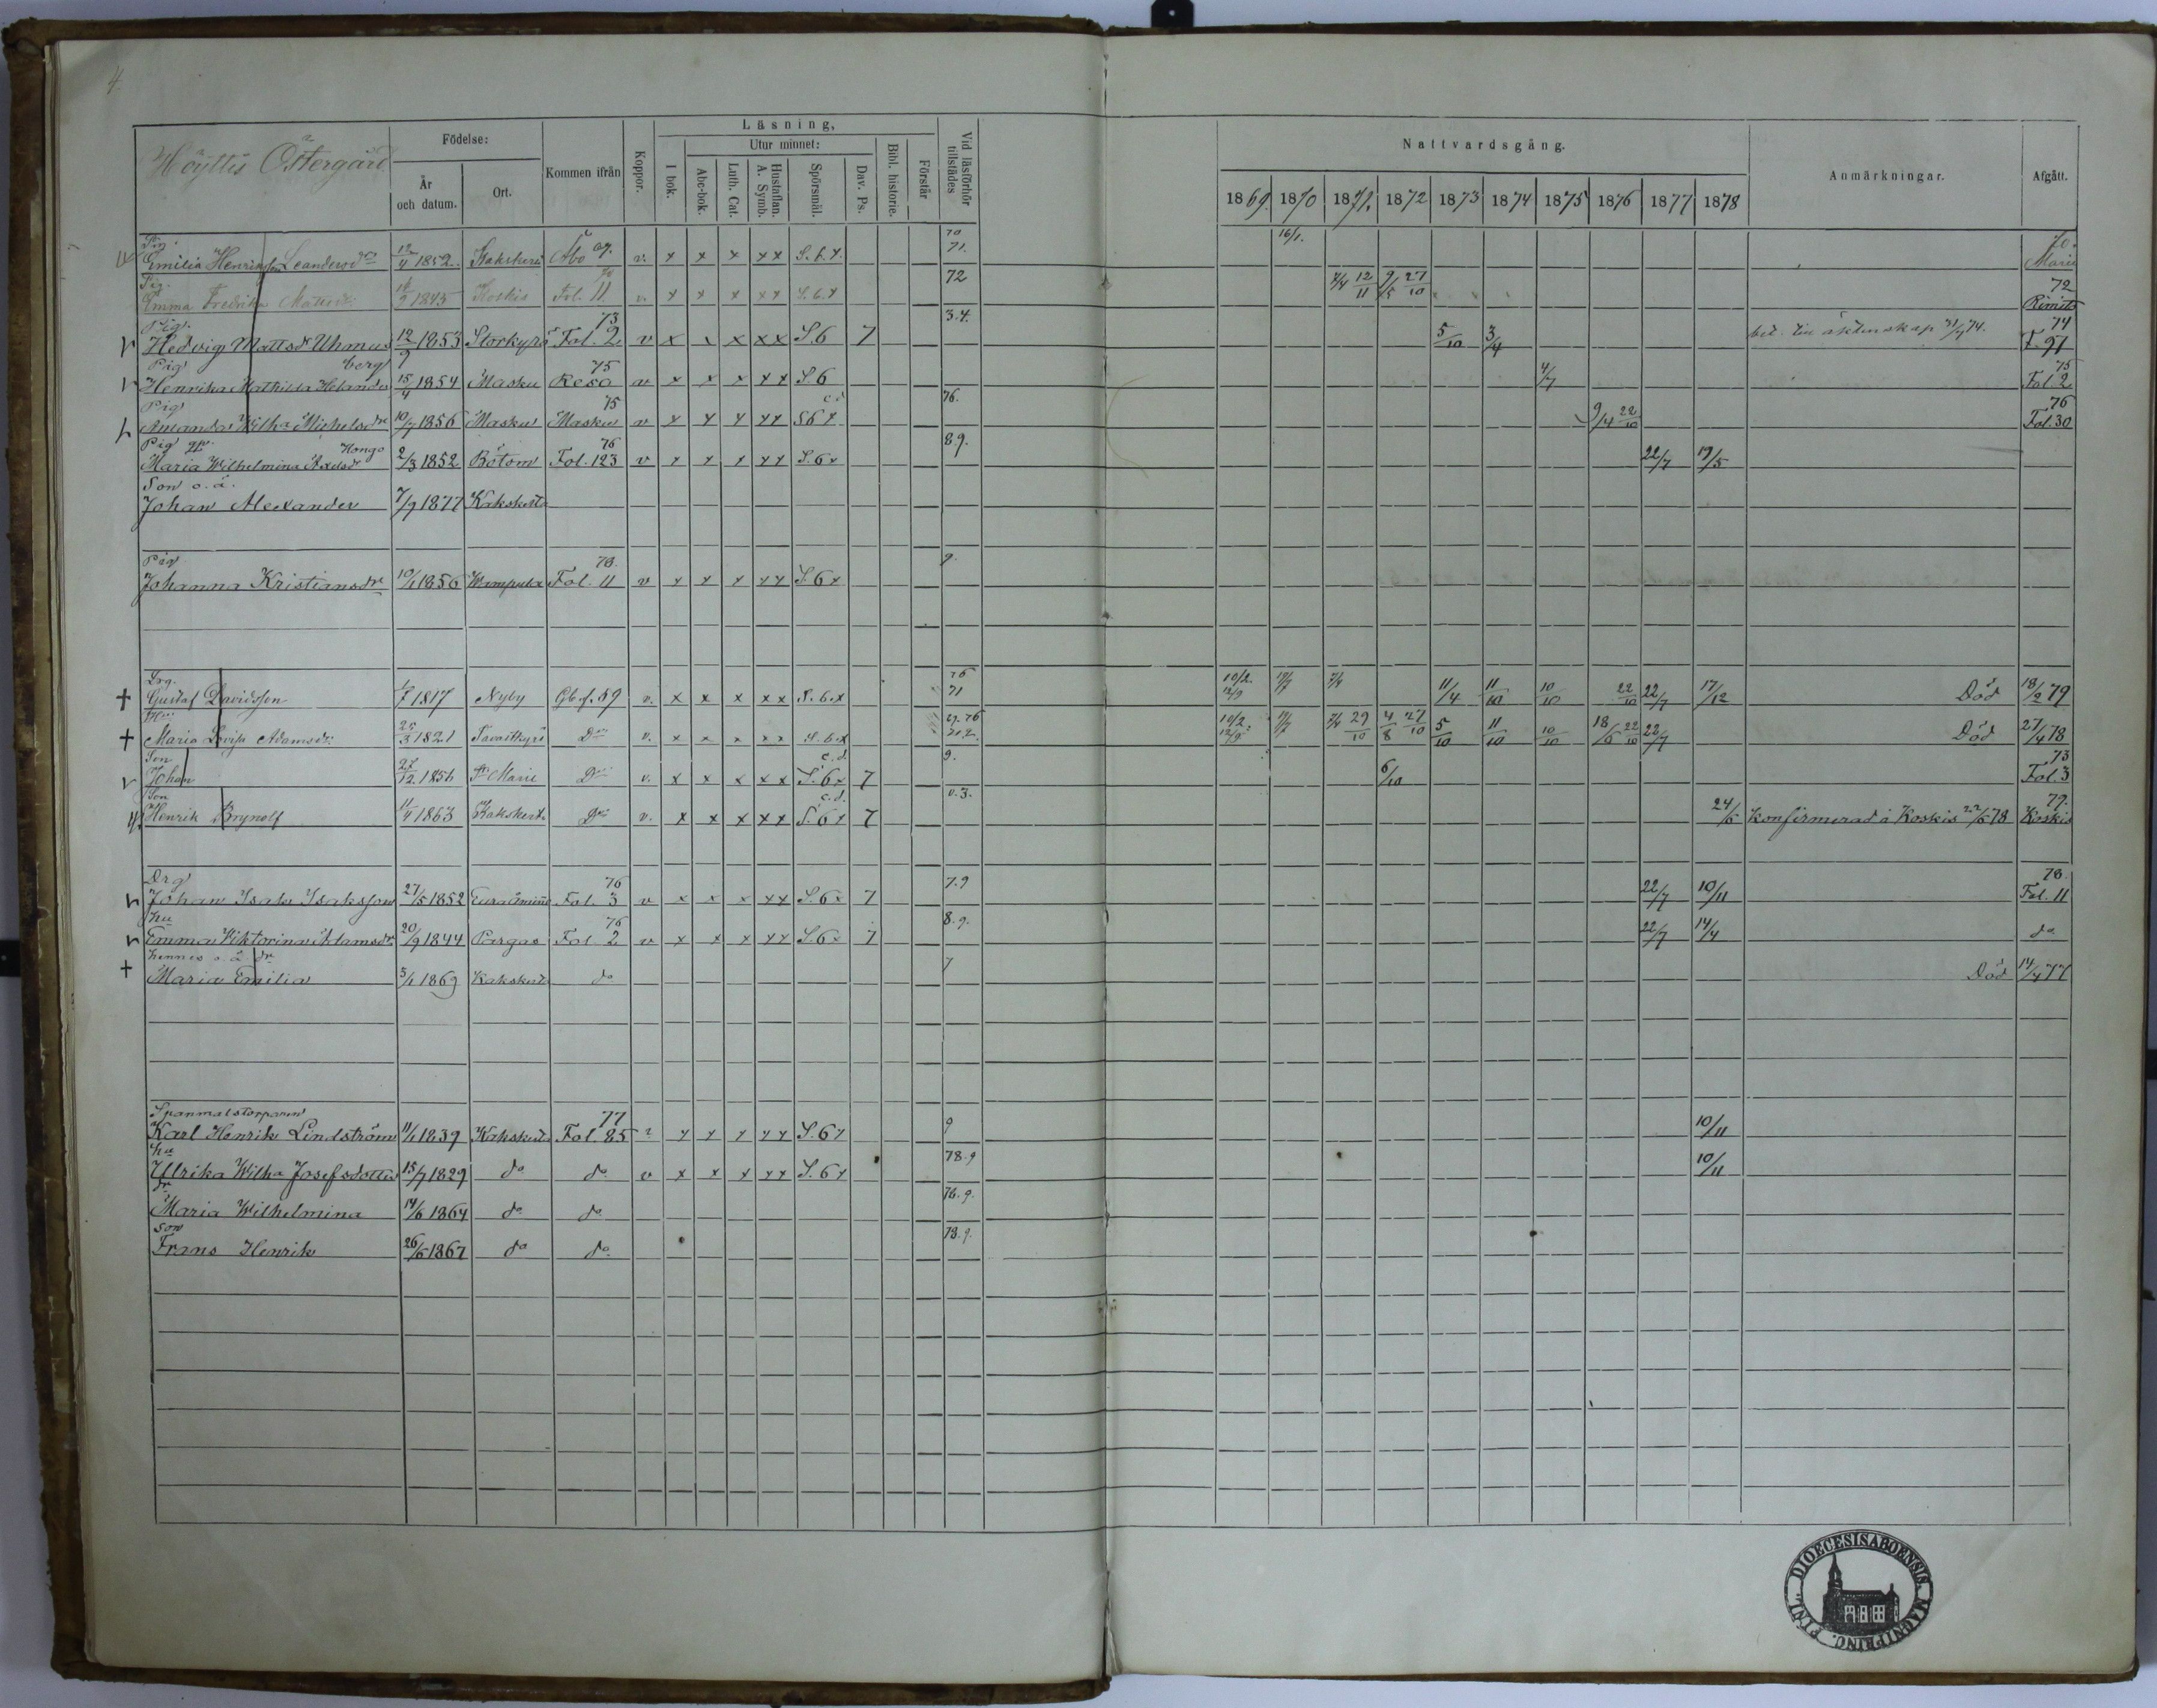 4.
Höyttis Östergård
Födelse:
År och datum.
Ort.
Kommen ifrån
Koppor.
Läsning,
I bok.
Utur minnet:
Abc-bok.
Luth. Cat.
Hustaflan. A. Symb.
Spörsmål.
Dav. Ps.
Bibl. historie.
Förstår
Vid läsförhör tillstädes
Nattvardsgång.
1869. 1870 1871. 1872 1873 1874 1875 1876 1877 1878
Anmärkningar.
Afgått.
Pig. 70 16/1. 70.
Emilia Henriksson Leandersdr 1852. Kakskerta Åbo 69. v. x x x xx S. 6. x. 71. Marie
Pig. 70 72 72
Emma Fredrika Mattsdr 1845 Koskis Fol. 11. v. x x x xx S. 6. x 7/4 12/11 9/5 27/10 Rimito
Pig. 73 3.4. 74
Hedvig Mattsdr Uhmus 12/9 1853 Storkyro Fol. 2 v x x x xx S 6 7 5/10 3/4 bet. till äktenskap 74. F. 91
Pig berg 75 75
Henrika Mathilda Helander 15/4 1854 Masku Reso v x x x xx S. 6 4/7 Fol. 2
Pig 75 c.d 76. 76
Amanda Wilh:a Michelsdr 10/7 1856 Masku Masku v x x x xx S 6 x 9/4 22/10 Fol. 30
Pig Kongo 76 8.9.
Maria Wilhelmina Axelsdr 2/3 1852 Bötom Fol. 123 v x x x xx S. 6 x 22/7 19/5
Son o. ä.
Johan Alexander 7/9 1877 Kakskerta
Pig 78. 9.
Johanna Kristiansdr 10/1 1856 Wampula Fol. 11 v x x x xx S. 6 x
Drg. 76
Gustaf Davidsson 1817 Nyby Gb. f. 69 v. x x x xx S. 6. x 71 10/2. 12/9 7/4 11/4 11/10 10/10 22/10 22/7 17/12 Död 18/2 79
Hu 29. 76
Maria Lovisa Adamsdr. 25/3 1821 Tavastkyrö Do v. x x x xx S. 6. x 10/2 12/9 7/4 29/10 4/8 27/10 5/10 11/10 10/10 18/6 22/10 22/7 Död 27/4 78
Son c. d. 9. 73
Johan 27/12. 1856 St Marie Do v. x x x xx S. 6 x 7 6/10 Fol. 3
Son c. d. v. 3. 79.
Henrik Brynolf 11/4 1863 Kakskerta Do v. x x x xx S. 6 x 7 24/6 Konfirmerad i Koskis 22/6 78 Koskis
Drg 76 7.9 78.
Johan Isak Isaksson 27/5 1852 Euraåminne Fol. 3 v x x x xx S. 6 x 7 22/7 10/11 Fol. 11
hu 76 8.9.
Emma Viktorina Adamsdr 20/9 1844 Pargas Fol. 2 v x x x xx S. 6 x 7 22/7 14/4 do
hennes o. ä. dr 7
Maria Emilia 5/1 1869 Kakskerta do Död 14/4 77
Spanmalstorparen 77
Karl Henrik Lindström 11/1 1839 Kakskerta Fol. 85 v x x x xx S. 6 x 9 10/11
hu 78.9
Ulrika Wilh:a Josefsdotter 15/7 1829 do do v x x x xx S. 6 x 10/11
dr 76.9.
Maria Wilhelmina 14/6 1864 do do
son 78.9.
Frans Henrik 26/5 1867 do do
DIOECESIS ABOENSIS. MAGNI PRINC. FINL.